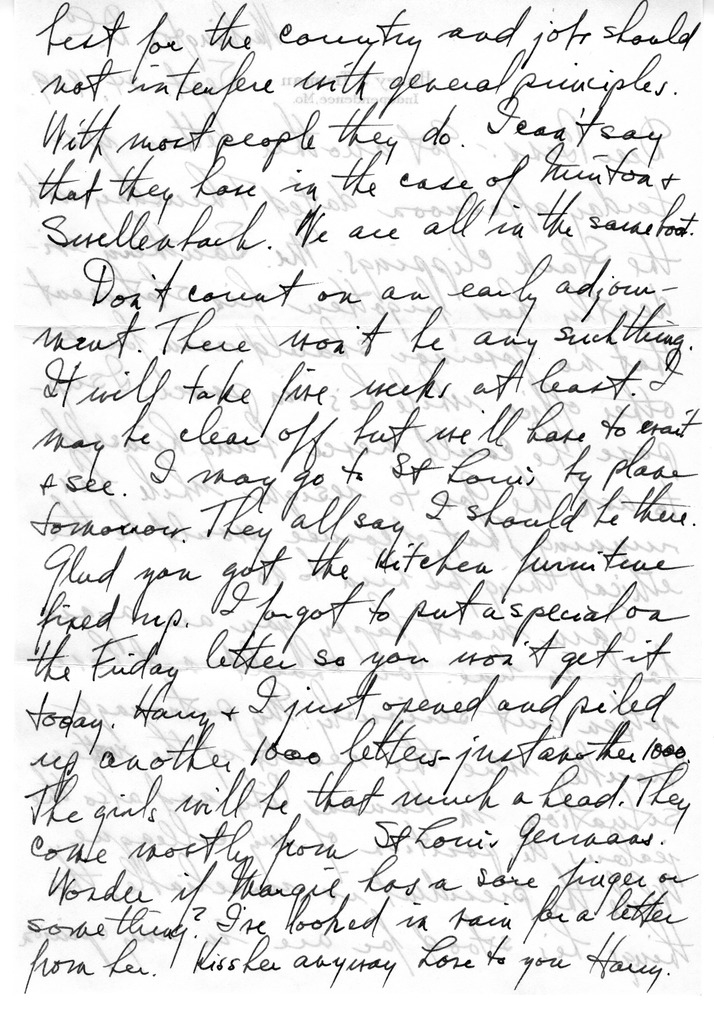 best for the country and jobs should
not interfere with general principles.
With most people they do. I can't say
that they have in the case of Minton &
Swellenbach. We are all in the same boat.
Don't count on an early adjourn-
ment. There won't be any such thing.
It will take five weeks at least. I
may be clear off but we'll have to wait
& see. I may go to St Louis by plane
tomorrow. They all say I should be there.
Glad you got the kitchen furniture
fixed up. I forgot to put a special on
the Friday letter so you won't get it
today. Harry & I just opened and piled
up another 1000 letters - just another 1000.
The girls will be that much ahead. They
come mostly from St Louis Germans.
Wonder if Margie has a sore finger or
something? I've looked in vain for a letter
from her. Kiss her anyway Love to you Harry.